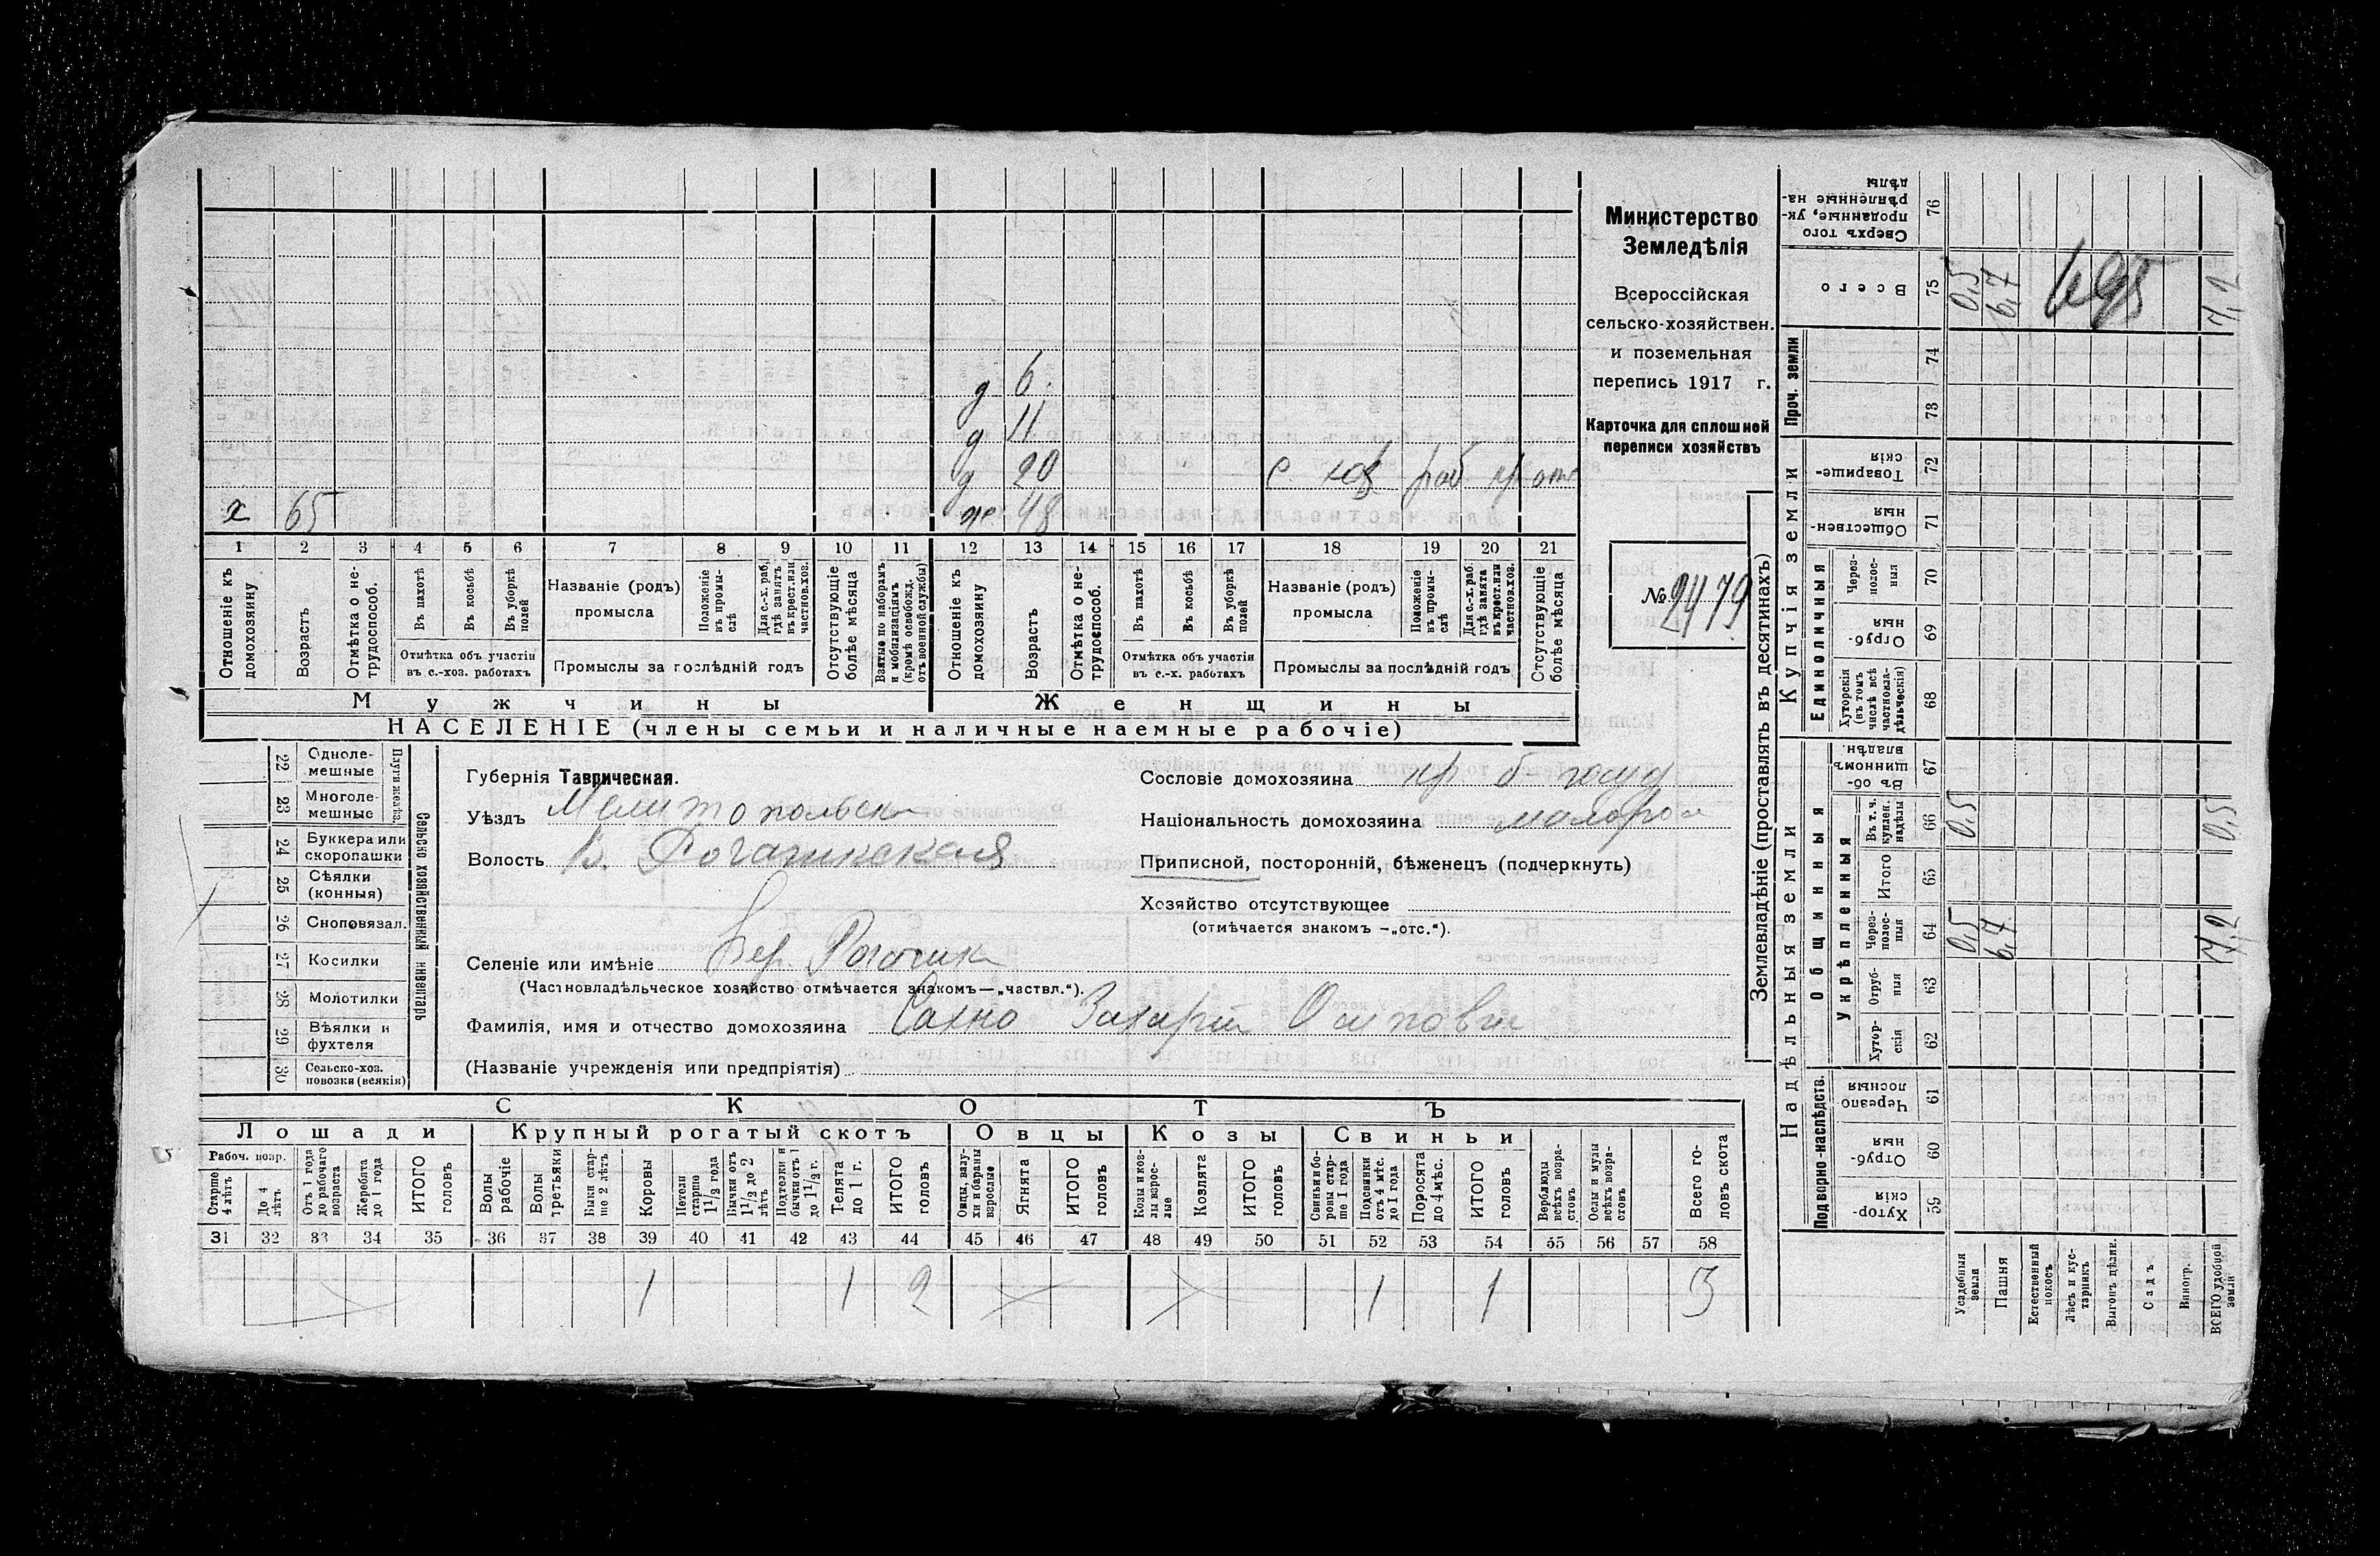 Министерство
Земледѣлія
Всероссійская
сельско-хозяйствен.
и поземельная
перепись 1917 г.
Карточка для сплошной
переписи хозяйствъ
№ 2479
д 6
д 11
д 20 с. хоз раб
х 65 ж 48
1 2 3 4 5 6 7 8 9 10 11 12 13 14 15 16 17 18 19 20 21
Отношеніе къ домохозяину
Возрастъ
Отмѣтка о не-трудоспособ.
Въ пахотѣ
Въ косьбѣ
Въ уборкѣ полей
Отмѣтка объ участіи въ с.-хоз. работахъ
Названіе (родъ) промысла
Положеніе въ промы-слѣ
Для с.-х. раб. гдѣ занятъ въ крест. или частнов. хоз.
Промыслы за послѣдній годъ
Отсутствующіе болѣе мѣсяца
Взятые по наборамъ и мобилизаціямъ (кромѣ освобожд. отъ военной службы)
Отношеніе къ домохозяину
Возрастъ
Отмѣтка о не-трудоспособ.
Въ пахотѣ
Въ косьбѣ
Въ уборкѣ полей
Отмѣтка объ участіи въ с.-х. работахъ
Названіе (родъ) промысла
Положеніе въ промы-слѣ
Для с.-х. раб. гдѣ занята въ крест. или частнов. хоз.
Промыслы за послѣдній годъ
Отсутствующіе болѣе мѣсяца
Мужчины Женщины
НАСЕЛЕНІЕ (члены семьи и наличные наемные рабочіе)
Сельско хозяйственный инвентарь
Плуги желѣз.
22 Одноле-мешные
23 Многоле-мешные
24 Буккера или скоропашки
25 Сѣялки (конныя)
26 Сноповязал.
27 Косилки
28 Молотилки
29 Вѣялки и фухтеля
30 Сельско-хоз. повозки (всякія)
Губернія Таврическая.
Уѣздъ Мелитопольск
Волость В. Рогачикская
Сословіе домохозяина кр б. госуд
Національность домохозяина малорос
Приписной, посторонній, бѣженецъ (подчеркнуть)
Хозяйство отсутствующее
(отмѣчается знакомъ —„отс.“).
Селеніе или имѣніе Вер. Рогачик
(Частновладѣльческое хозяйство отмѣчается знакомъ—„частвл.“).
Фамилія, имя и отчество домохозяина Сахно Захарій Осипович
(Названіе учрежденія или предпріятія)
СКОТЪ
Лошади Крупный рогатый скотъ Овцы Козы Свиньи
Рабоч. возр.
Старше 4 лѣтъ
До 4 лѣтъ
Отъ 1 года до рабочаго возраста
Жеребята до 1 года
ИТОГО головъ
Волы рабочіе
Волы третьяки
Быки стар-ше 2 лѣтъ
Коровы
Нетели старше 1 1/2 года
Бычки отъ 1 1/2 до 2 лѣтъ
Подтелки и бычки отъ 1 до 1 1/2 г.
Телята до 1 г.
ИТОГО головъ
Овцы, валу-хи и бараны взрослые
Ягнята
ИТОГО головъ
Козы и коз-лы взрос-лые
Козлята
ИТОГО головъ
Свиньи и бо-ровы стар-ше 1 года
Подсвинки отъ 4 мѣс. до 1 года
Поросята до 4 мѣс.
ИТОГО головъ
Верблюды всѣхъ возра-стовъ
Ослы и мулы всѣхъ возра-стовъ
Всего го-ловъ скота
31 32 33 34 35 36 37 38 39 40 41 42 43 44 45 46 47 48 49 50 51 52 53 54 55 56 57 58
1 1 2 1 1 3
Землевладѣніе (проставлять въ десятинахъ)
Сверхъ того проданные, ук-рѣпленные на-дѣлы 76
Всего 75 0,5 6,7 7,2
Проч. земли
74
73
Купчія земли
Товарище-скія 72
Обществен-ныя 71
Единоличныя
Через-полос-ныя 70
Отруб-ныя 69
Хуторскія (въ томъ числѣ всѣ частновла-дѣльческія) 68
Надѣльныя земли
Общинныя
Въ об-щинномъ владѣн. 67
Укрѣпленныя
Въ т. ч. куплен. надѣлы 66 0.5 0.5
Итого 65
Через-полос-ныя 64 0.5 6,7 7,2
Отруб-ныя 63
Хутор-скія 62
Подворно-наслѣдств.
Черезпо-лосныя 61
Отруб-ныя 60
Хутор-скія 59
Усадебныя земли
Пашня
Естественный покосъ
Лѣсъ и кус-тарникъ
Выгонъ цѣлин.
Садъ
Виногр.
ВСЕГО удобной земли